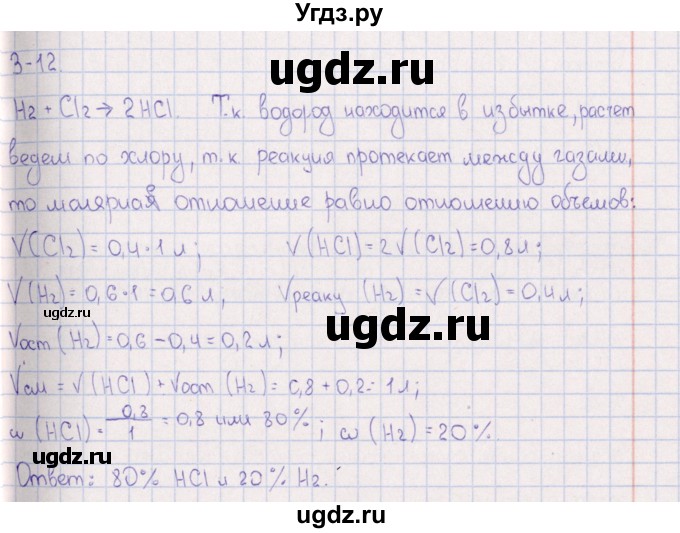 Угдз.ру
ugdz.ru
3-12.
H2 + Cl2 → 2HCl. Т.к. водород находится в избытке, расчет
ведем по хлору, т.к. реакция протекает между газами,
то молярное отношение равно отношению объемов:
V(Cl2) = 0,4·1 л; V(HCl) = 2V(Cl2) = 0,8л;
V(H2) = 0,6·1 = 0,6 л, Vреакц (H2) = V(Cl2) = 0,4л;
ugdz.ru
Vост (H2) = 0,6 - 0,4 = 0,2л;
Vсм = V(HCl) + Vост (H2) = 0,8 + 0,2 = 1л;
ω (HCl) = 0,8/1 = 0,8 или 80%; ω (H2) = 20%.
ugdz.ru
Ответ: 80% HCl и 20% H2.
ugdz.ru
ugdz.ru